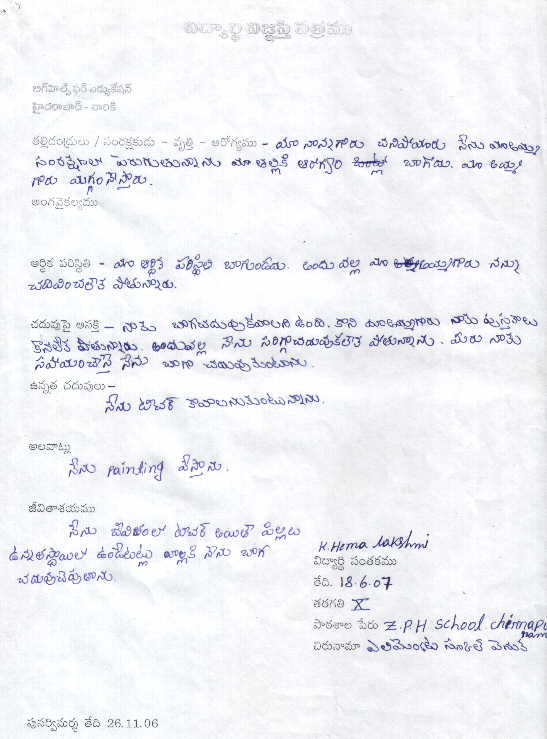 విద్యార్థి విజ్ఞప్తి పత్రము
బిగ్‌హెల్ప్ ఫర్ ఎడ్యుకేషన్
హైదరాబాద్ - వారికి
తల్లిదండ్రులు / సంరక్షకుడు - వృత్తి - ఆరోగ్యము - మా నాన్నగారు చనిపోయారు నేను మాఅమ్మ
సంరక్షణలో పెరుగుతున్నాను మా తల్లికి ఆరోగ్యం బాగోదు. మా అమ్మ
గారు మగ్గంనేస్తారు.
అంగవైకల్యము
ఆర్థిక పరిస్థితి - మా ఆర్థిక పరిస్థితి బాగుండదు. అందు వల్ల మా అమ్మగారు నన్ను
చదివించలేక పోతున్నారు.
చదువుపై ఆసక్తి - నాకు బాగచదువుకోవాలని ఉంది. కాని మాఅమ్మగారు నాకు పుస్తకాలు
కొనలేక పోతున్నారు. అందువల్ల నేను సరిగ్గాచదువుకలేక పోతున్నాను. మీరు నాకు
సహాయంచేస్తే నేను బాగా చదువుకుంటాను.
ఉన్నత చదువులు -
నేను టీచర్ కావాలనుకుంటున్నాను.
అలవాట్లు
నేను painting వేస్తాను.
జీవితాశయము
నేను జీవితంలో టీచర్ అయితే పిల్లలు
ఉన్నతస్థాయిలో ఉండేటట్లు వాల్లకి నేను బాగ
చదువుచెపుతాను.
K. Hema lakshmi
విద్యార్థి సంతకము
తేది. 18.6.07
తరగతి X
పాఠశాల పేరు Z.P.H school
చిరునామా వెనుక
పునర్విమర్శ తేది 26.11.06